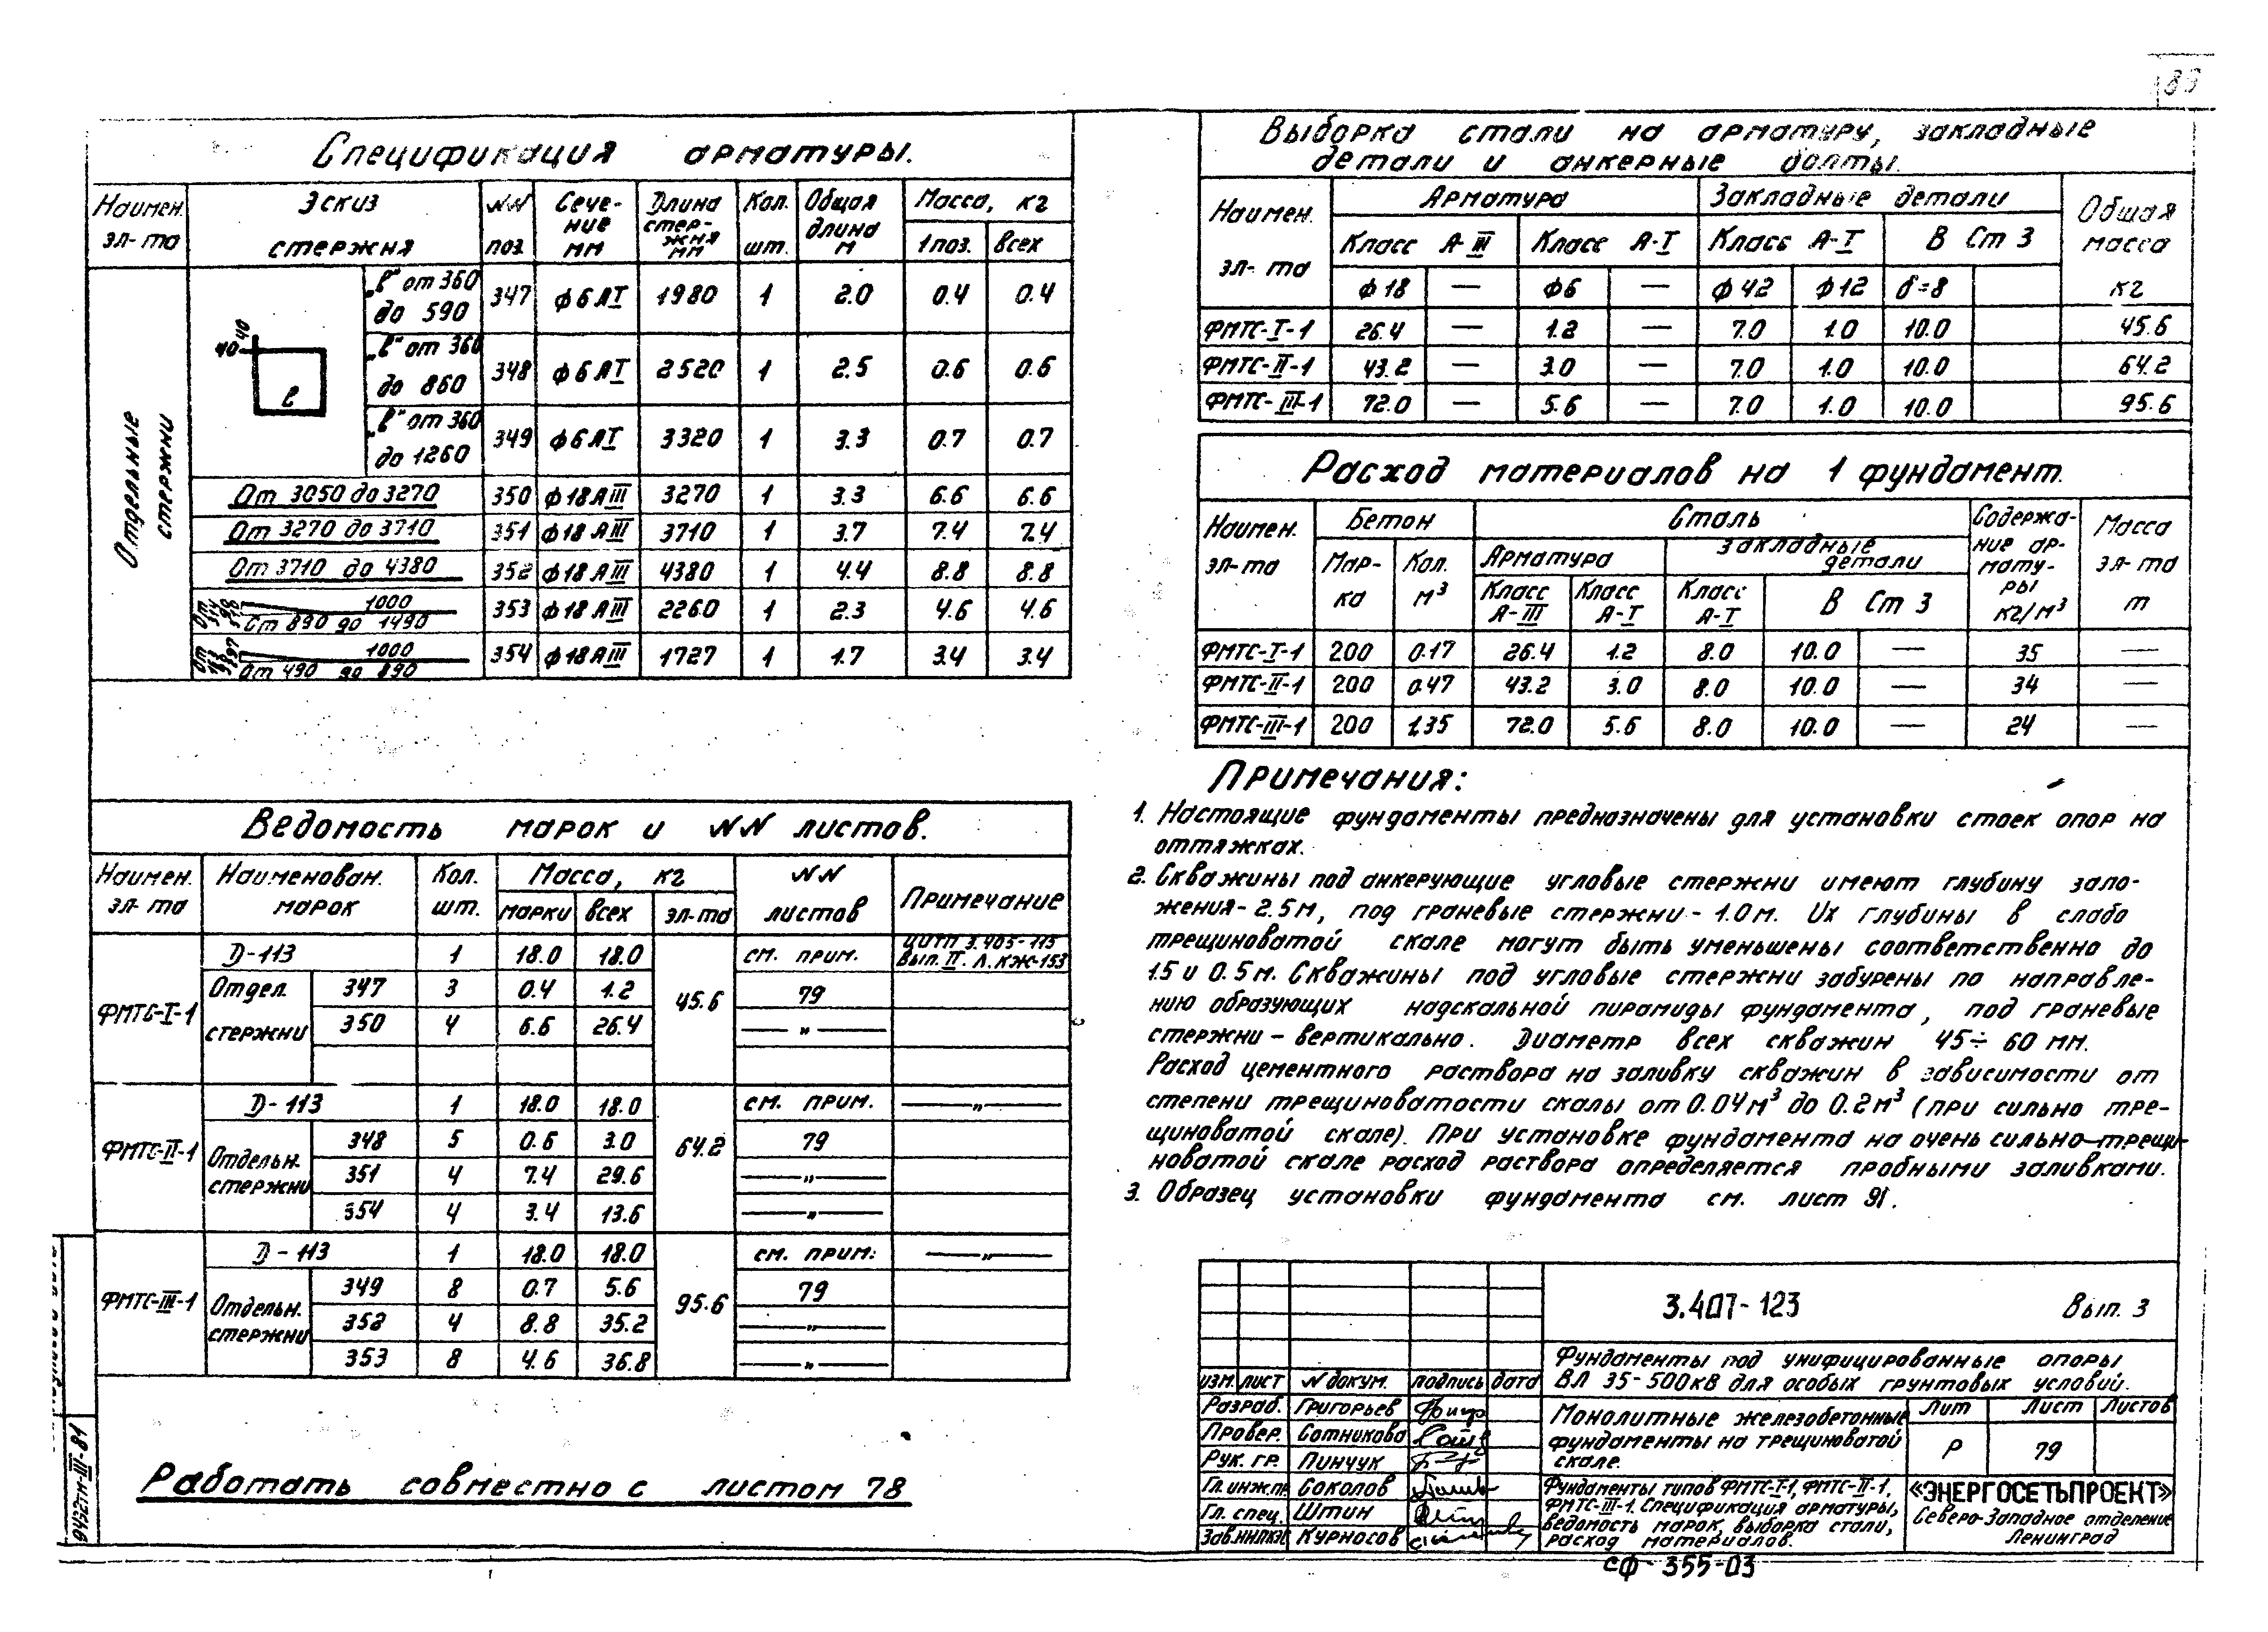 89
Спецификация арматуры.
Наимен. эл-та | Эскиз стержня | NN поз. | Сече-ние мм | Длина стер-жня мм | Кол. шт. | Общая длина м | Масса, кг
1 поз. | всех
Отдельные стержни
40 40 ℓ
„ℓ" от 360 до 590 | 347 | ф6АI | 1980 | 1 | 2.0 | 0.4 | 0.4
„ℓ" от 360 до 860 | 348 | ф6АI | 2520 | 1 | 2.5 | 0.6 | 0.6
„ℓ" от 360 до 1260 | 349 | ф6АI | 3320 | 1 | 3.3 | 0.7 | 0.7
От 3050 до 3270 | 350 | ф18АIII | 3270 | 1 | 3.3 | 6.6 | 6.6
От 3270 до 3710 | 351 | ф18АIII | 3710 | 1 | 3.7 | 7.4 | 7.4
От 3710 до 4380 | 352 | ф18АIII | 4380 | 1 | 4.4 | 8.8 | 8.8
1000 От 890 до 1490 | 353 | ф18АIII | 2260 | 1 | 2.3 | 4.6 | 4.6
1000 От 490 до 890 | 354 | ф18АIII | 1727 | 1 | 1.7 | 3.4 | 3.4
Ведомость марок и NN листов.
Наимен. эл-та | Наименован. марок | Кол. шт. | Масса, кг | NN листов | Примечание
марки | всех | эл-та
ФМТС-I-1 | Д-113 | 1 | 18.0 | 18.0 | 45.6 | см. прим. | ЦИТП 3.403-115 Вып. II. Л. КЖ-153
Отдел. стержни | 347 | 3 | 0.4 | 1.2 | 79
350 | 4 | 6.6 | 26.4 | — „ —
ФМТС-II-1 | Д-113 | 1 | 18.0 | 18.0 | 64.2 | см. прим. | — „ —
Отдельн. стержни | 348 | 5 | 0.6 | 3.0 | 79
351 | 4 | 7.4 | 29.6 | — „ —
354 | 4 | 3.4 | 13.6 | — „ —
ФМТС-III-1 | Д-113 | 1 | 18.0 | 18.0 | 95.6 | см. прим: | — „ —
Отдельн. стержни | 349 | 8 | 0.7 | 5.6 | 79
352 | 4 | 8.8 | 35.2 | — „ —
353 | 8 | 4.6 | 36.8 | — „ —
Работать совместно с листом 78
9432тм-III-81
Выборка стали на арматуру, закладные
детали и анкерные болты.
Наимен. эл-та | Арматура | Закладные детали | Общая масса кг
Класс А-III | Класс А-I | Класс А-I | В Ст 3
ф18 | — | ф6 | — | ф42 | ф12 | б=8
ФМТС-I-1 | 26.4 | — | 1.2 | — | 7.0 | 1.0 | 10.0 | 45.6
ФМТС-II-1 | 43.2 | — | 3.0 | — | 7.0 | 1.0 | 10.0 | 64.2
ФМТС-III-1 | 72.0 | — | 5.6 | — | 7.0 | 1.0 | 10.0 | 95.6
Расход материалов на 1 фундамент.
Наимен. эл-та | Бетон | Сталь | Содержа-ние ар-мату-ры кг/м³ | Масса эл-та т
Мар-ка | Кол. м³ | Арматура | закладные детали
Класс А-III | Класс А-I | Класс А-I | В Ст 3
ФМТС-I-1 | 200 | 0.17 | 26.4 | 1.2 | 8.0 | 10.0 | — | 35 | —
ФМТС-II-1 | 200 | 0.47 | 43.2 | 3.0 | 8.0 | 10.0 | — | 34 | —
ФМТС-III-1 | 200 | 1.35 | 72.0 | 5.6 | 8.0 | 10.0 | — | 24 | —
Примечания:
1. Настоящие фундаменты предназначены для установки стоек опор на
оттяжках.
2. Скважины под анкерующие угловые стержни имеют глубину зало-
жения-2.5м, под граневые стержни-1.0м. Их глубины в слабо
трещиноватой скале могут быть уменьшены соответственно до
1.5 и 0.5м. Скважины под угловые стержни забурены по направле-
нию образующих надскальной пирамиды фундамента, под граневые
стержни - вертикально. Диаметр всех скважин 45÷60 мм.
Расход цементного раствора на заливку скважин в зависимости от
степени трещиноватости скалы от 0.04м³ до 0.2м³ (при сильно тре-
щиноватой скале). При установке фундамента на очень сильно трещи-
новатой скале расход раствора определяется пробными заливками.
3. Образец установки фундамента см. лист 91.
3.407-123 Вып. 3
Фундаменты под унифицированные опоры
ВЛ 35-500кВ для особых грунтовых условий.
изм. | лист | N докум. | подпись | дата
Разраб. | Григорьев
Провер. | Сотникова
Рук. гр. | Пинчук
Гл.инж.пр | Соколов
Гл. спец. | Штин
Зав.НИЛКЭС | Курносов
Монолитные железобетонные
фундаменты на трещиноватой
скале.
Лит | Лист | Листов
Р | 79
Фундаменты типов ФМТС-I-1, ФМТС-II-1,
ФМТС-III-1. Спецификация арматуры,
ведомость марок, выборка стали,
расход материалов.
«ЭНЕРГОСЕТЬПРОЕКТ»
Северо-Западное отделение
Ленинград
сф-355-03